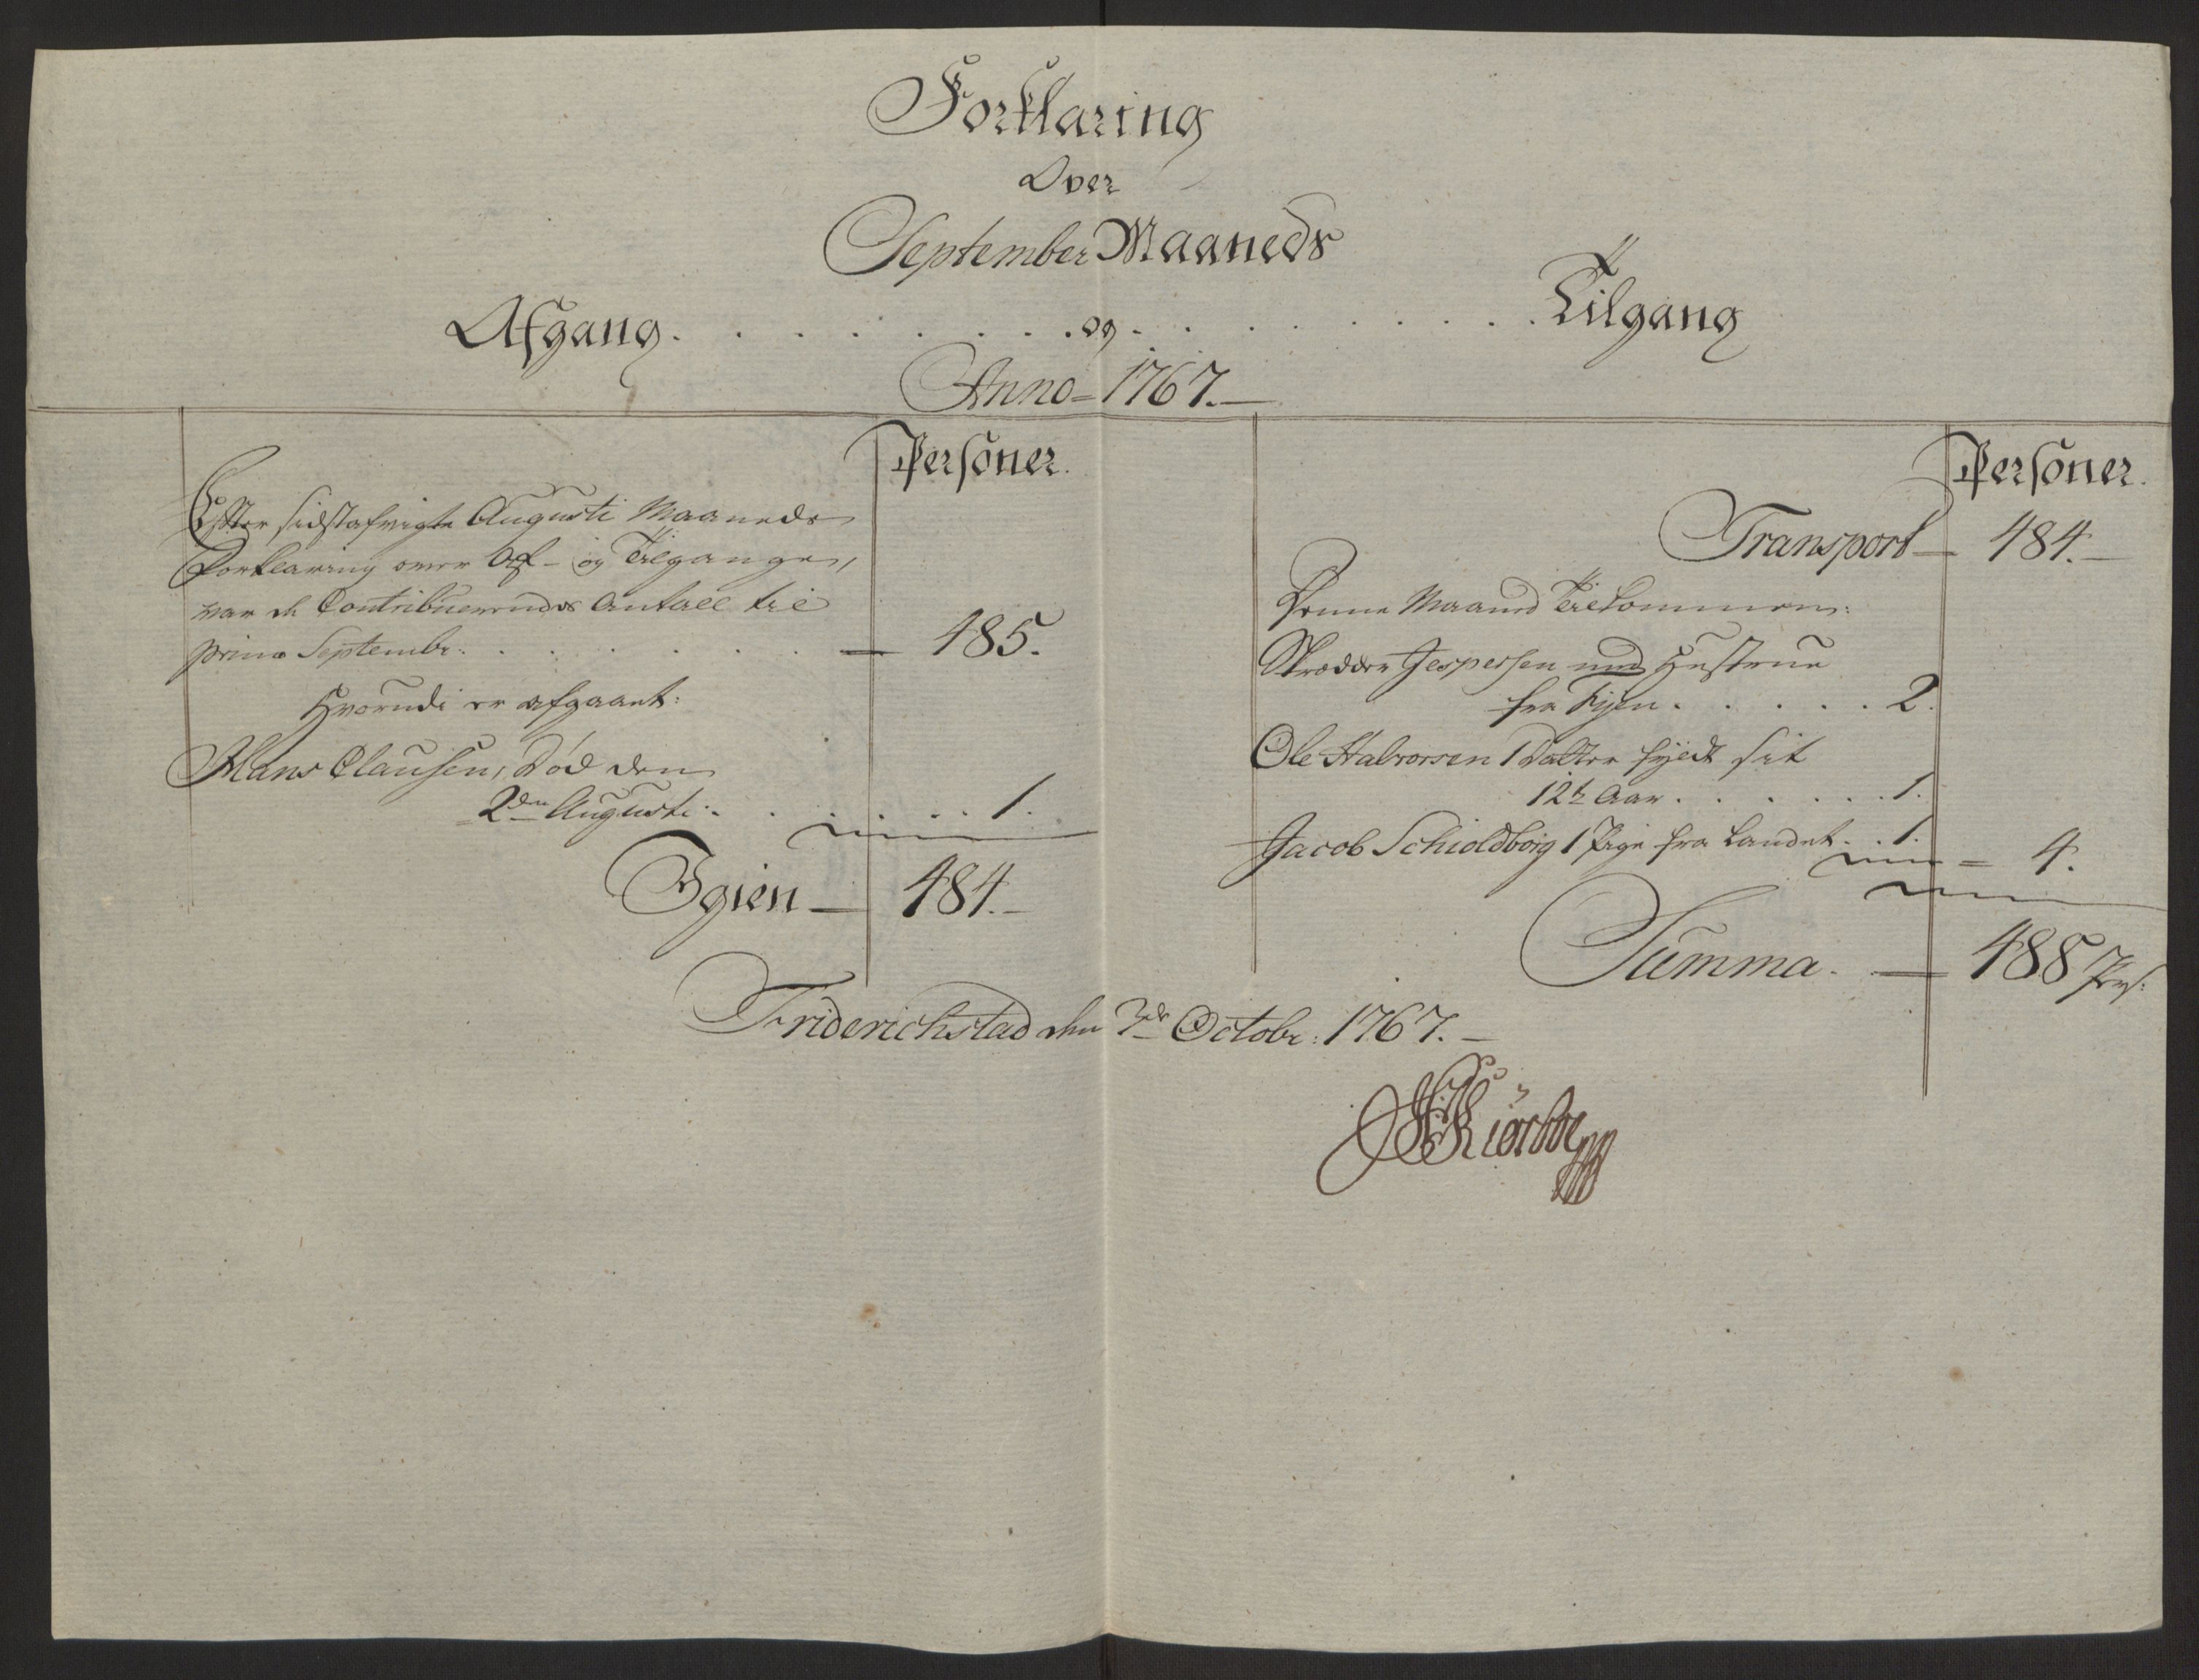 Forklaring
Over
September Maaneds
Afgang. . . . . . . . og . . . . . . . . Tilgang
Anno = 1767. —
Personer.
Efter sidstafvigte Augusti Maaneds
Forklaring over Af- og Tilgangen,
var de Contribuerendes Antall til
primo Septembr. . . . . . . . — 485.
Hvorudi er afgaaet:
Hans Clausen, død den
2den Augusti . . . . . . 1.
Igien — 484. —
Personer.
Transport — 484. —
Denne Maaned Tilkommen:
Skredder Jespersen med Hustrue
fra Byen . . . . . 2.
Ole Halvorsen 1 Datter fyldt sit
12te Aar . . . . . . 1.
Jacob Schioldborg 1 Pige fra Landet . . 1.
= 4.
Summa. — 488 Pers:
Friderichstad den 3de Octobr: 1767. —
Kiørboe